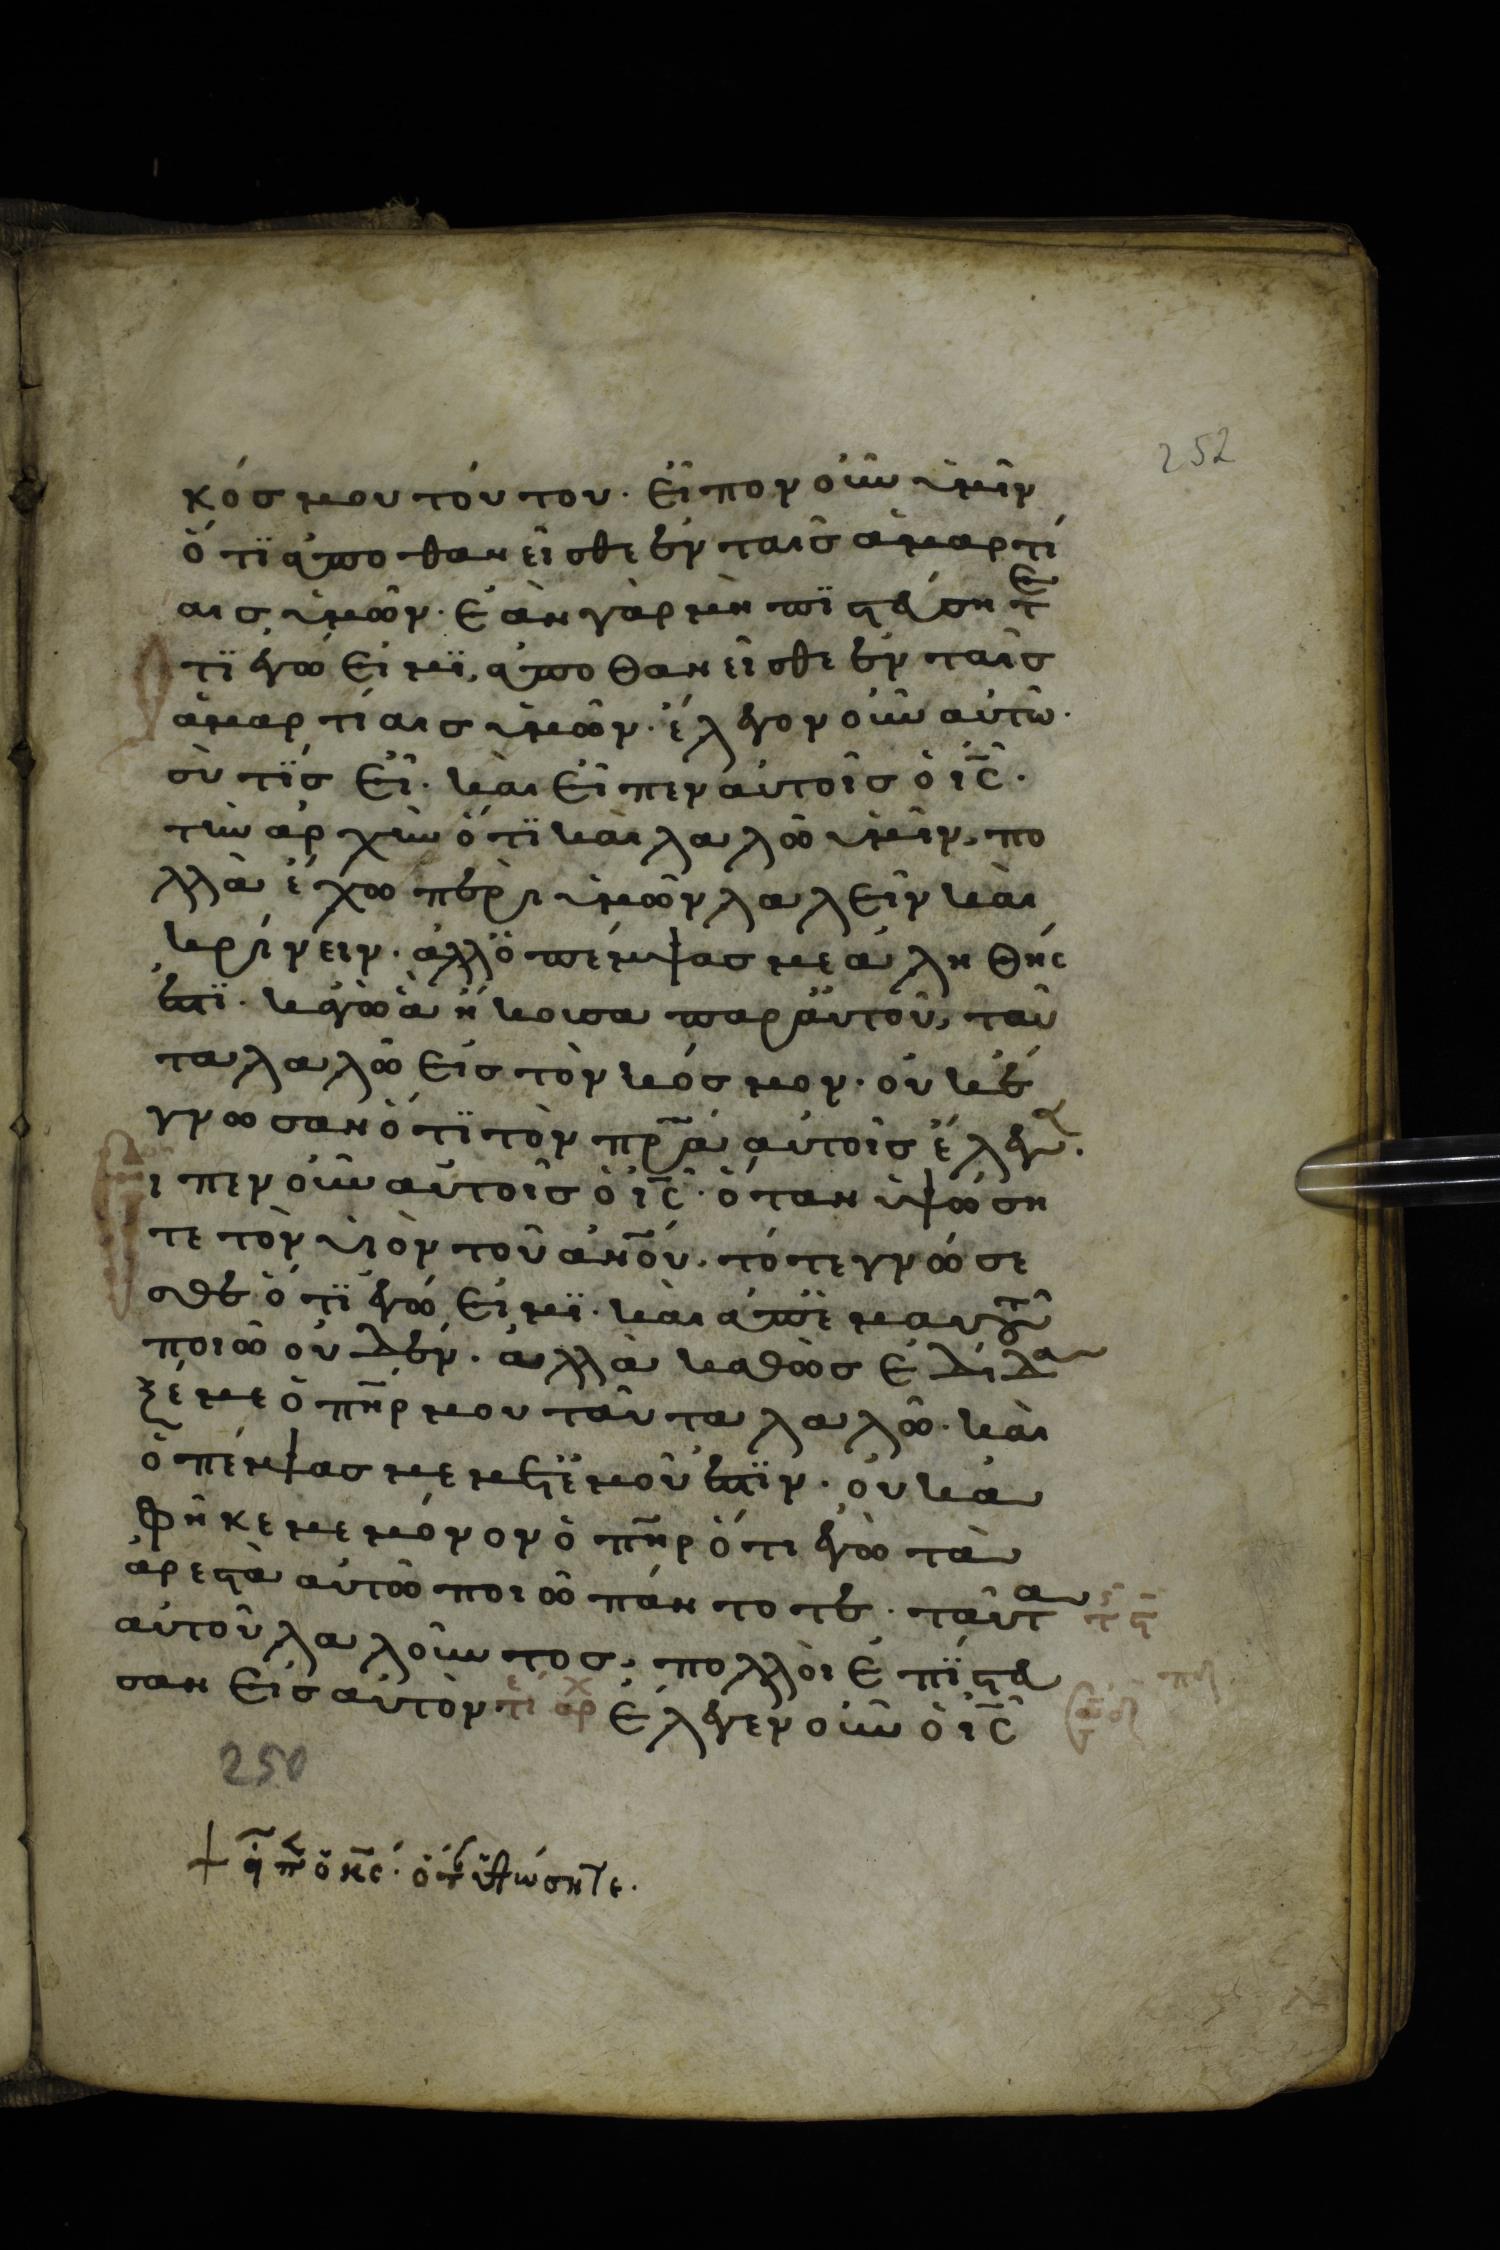 252
κόσμου τούτου. εἶπον οὖν ὑμῖν
ὅτϊ ἀποθανεῖσθε ἐν ταῖς ἁμαρτί
αις ὑμῶν. ἐὰν γὰρ μὴ πϊστεύσητε
τϊ ἐγώ εἰμϊ, ἀποθανεῖσθε ἐν ταῖς
ἁμαρτίαις ὑμῶν. ἔλεγον οὖν αὐτῶ.
σὺ τϊς εἶ. καὶ εἶπεν αὐτοῖς ὁ ις̅.
τὴν ἀρχὴν ὅτϊ καὶ λαλῶ ὑμῖν, πο
λλὰ ἔχω περὶ ὑμῶν λαλεῖν καὶ
κρίνειν. ἀλλ' ὁ πέμψας με ἀληθής
ἐστϊ. κἀγὼ ἃ ἤκουσα παρ' αὐτοῦ, ταῦ
τα λαλῶ εἰς τὸν κόσμον. οὐκ ἔ
γνωσαν ὅτϊ τὸν πρ̅α αὐτοῖς ἔλεγεν.
ιπεν οὖν αὐτοῖς ὁ ις̅. ὅταν ὑψώση
τε τὸν υἱὸν τοῦ αν̅ου, τότε γνώσε
σθε ὅτϊ ἐγώ εἰμϊ. καὶ ἀπ' ἐμαυτοῦ
ποιῶ οὐδέν. ἀλλὰ καθὼς ἐδίδα
ξέ με ὁ πη̅ρ μου ταῦτα λαλῶ. καὶ
ὁ πέμψας με μετ' ἐμοῦ ἐστϊν. οὐκ ἀ
φῆκε με μόνον ὁ πη̅ρ ὅτι ἐγὼ τὰ
ἀρεστὰ αὐτῶ ποιῶ πάντοτε. ταῦτα
αὐτοῦ λαλοῦντος, πολλοὶ ἐπϊστευ
σαν εἰς αὐτὸν ἀρχ ἔλεγεν οὖν ὁ ις̅
250
ὁ κς̅. ὅτ ὑψώσητε.